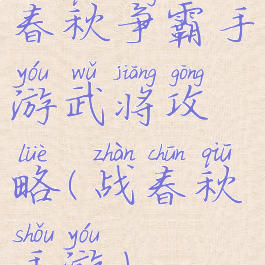 春秋争霸手
yóu wǔ jiāng gōng
游武将攻
lüè zhàn chūn qiū
略(战春秋
shǒu yóu
手游)